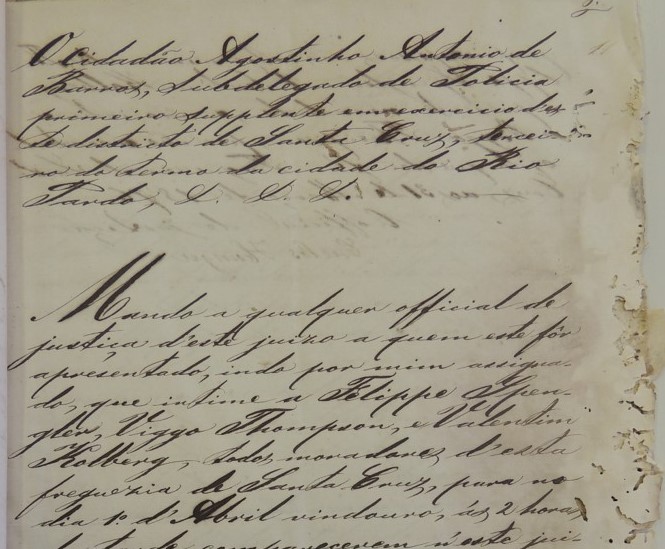 O Cidadão Agostinho Antonio de
Barros, Subdelegado de Policia
primeiro supplente em exercicio des-
te districto de Santa Cruz, tercei-
ro do termo da cidade do Rio
Pardo,
Mando a qualquer official de
justiça d'este juizo a quem este fôr
apresentado, indo por mim assigna-
do, que intime a Filippe Spen-
gler, Viggo Thompson, e Valentim
Kolberg, todos moradores d'esta
freguezia de Santa Cruz, para no
dia 1º d'Abril vindouro, ás 2 horas
da tarde comparecerem n'este jui-